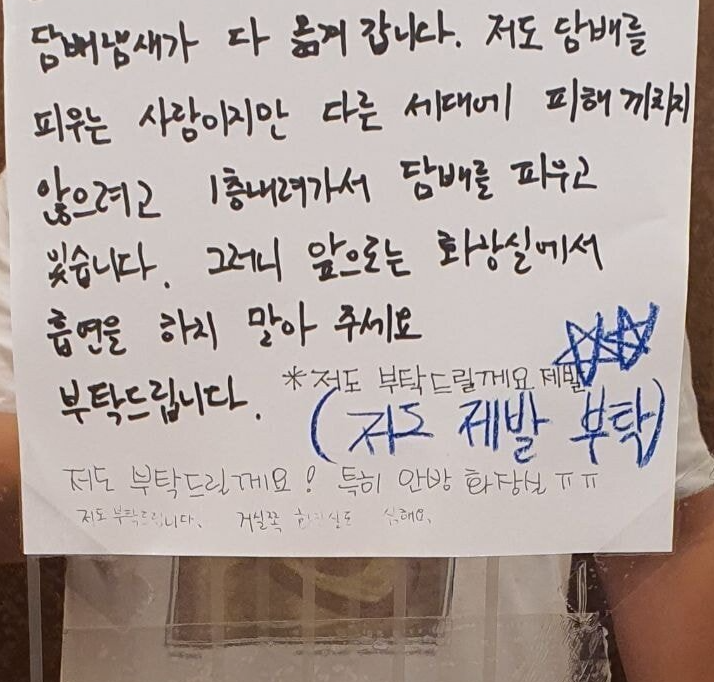 담배냄새가 다 옮겨 갑니다. 저도 담배를
피우는 사람이지만 다른 세대에 피해 끼치지
않으려고 1층내려가서 담배를 피우고
있습니다. 그러니 앞으로는 화장실에서
흡연을 하지 말아 주세요
부탁드립니다.
*저도 부탁드릴게요 제발
(저도 제발 부탁)
저도 부탁드릴게요! 특히 안방 화장실 ㅠㅠ
저도 부탁드립니다. 거실쪽 화장실도 심해요.